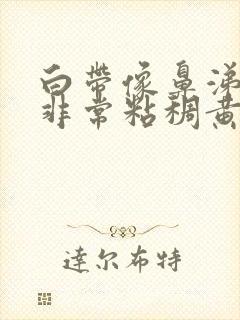 白带像鼻涕
非常粘稠黄
達尔布特